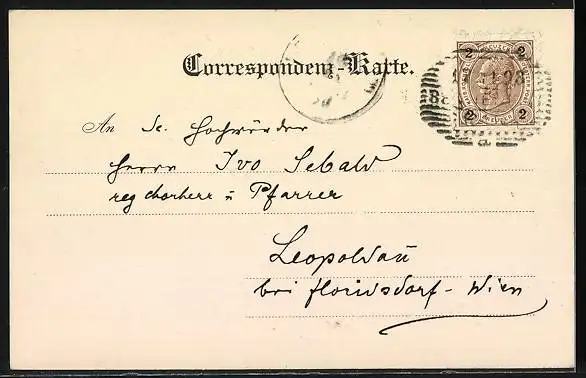 Correspondenz-Karte.
2 2
2 2
An Sr. Hochwürden
Herrn Ivo Sebald
reg Chorherr u Pfarrer
Leopoldau
bei Floridsdorf - Wien